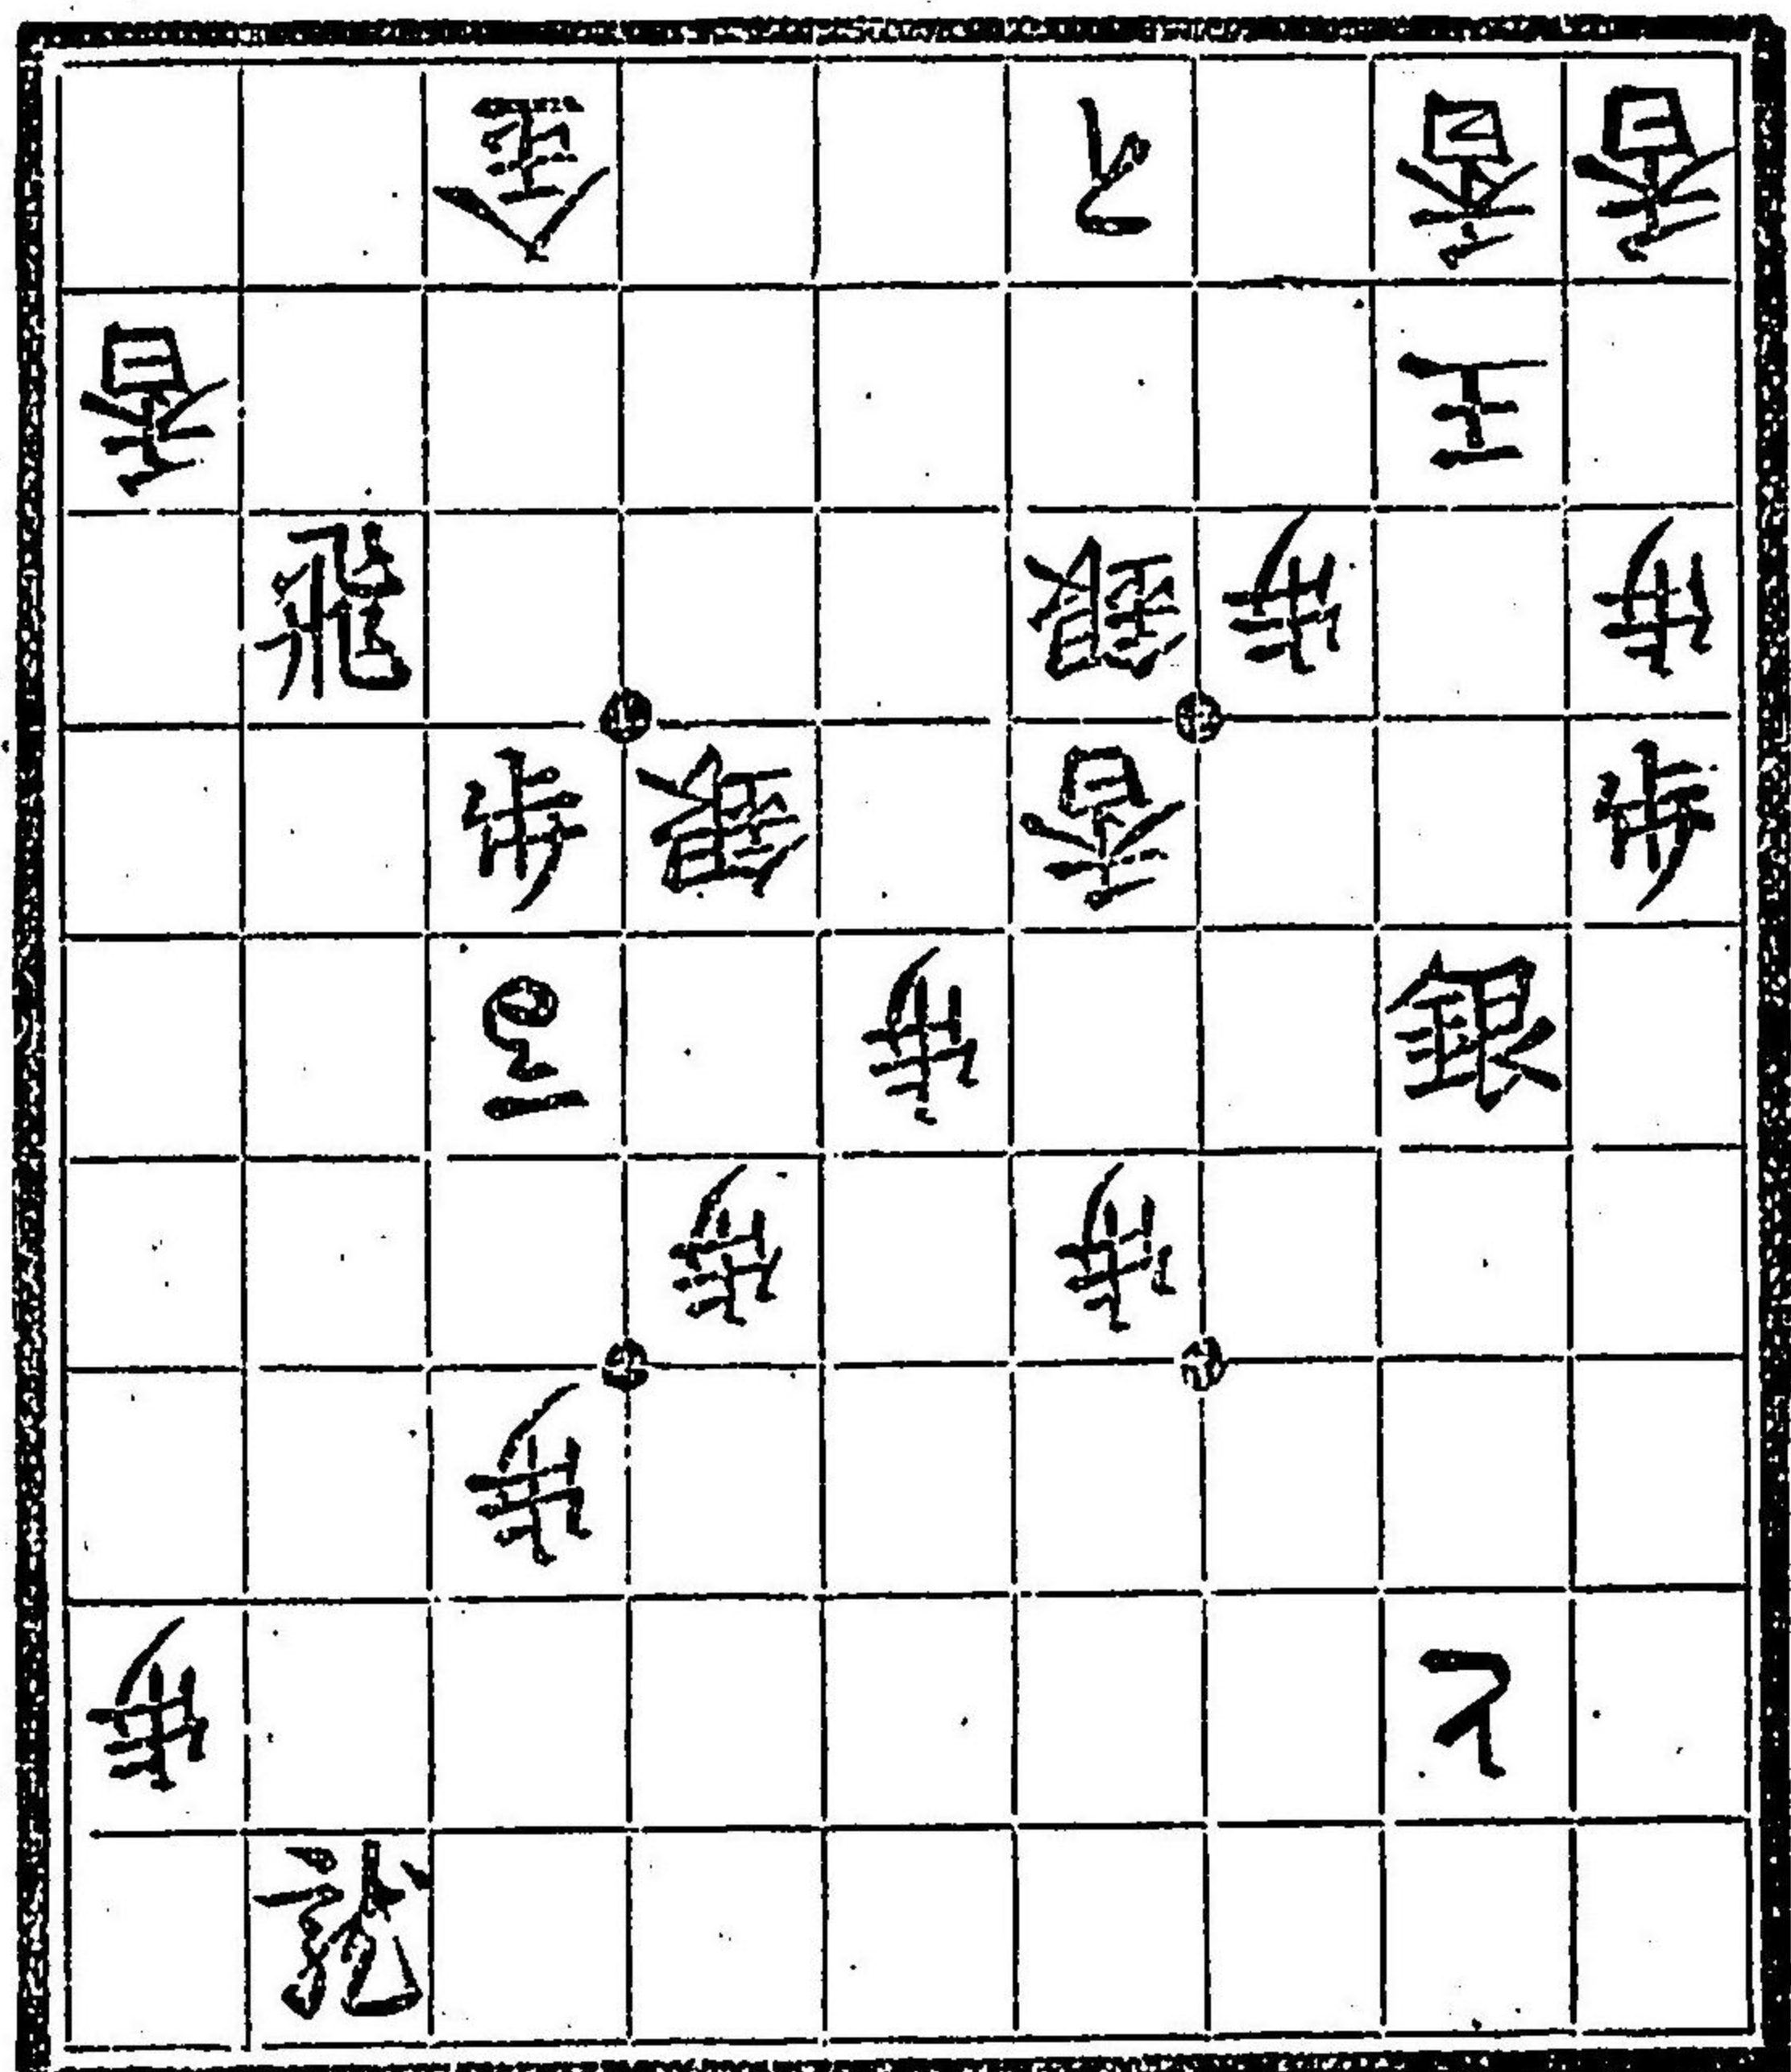 金 と 香 香
香 王
飛 銀 歩 歩
歩 銀 香 歩
歩 銀
歩 歩
歩
歩
龍